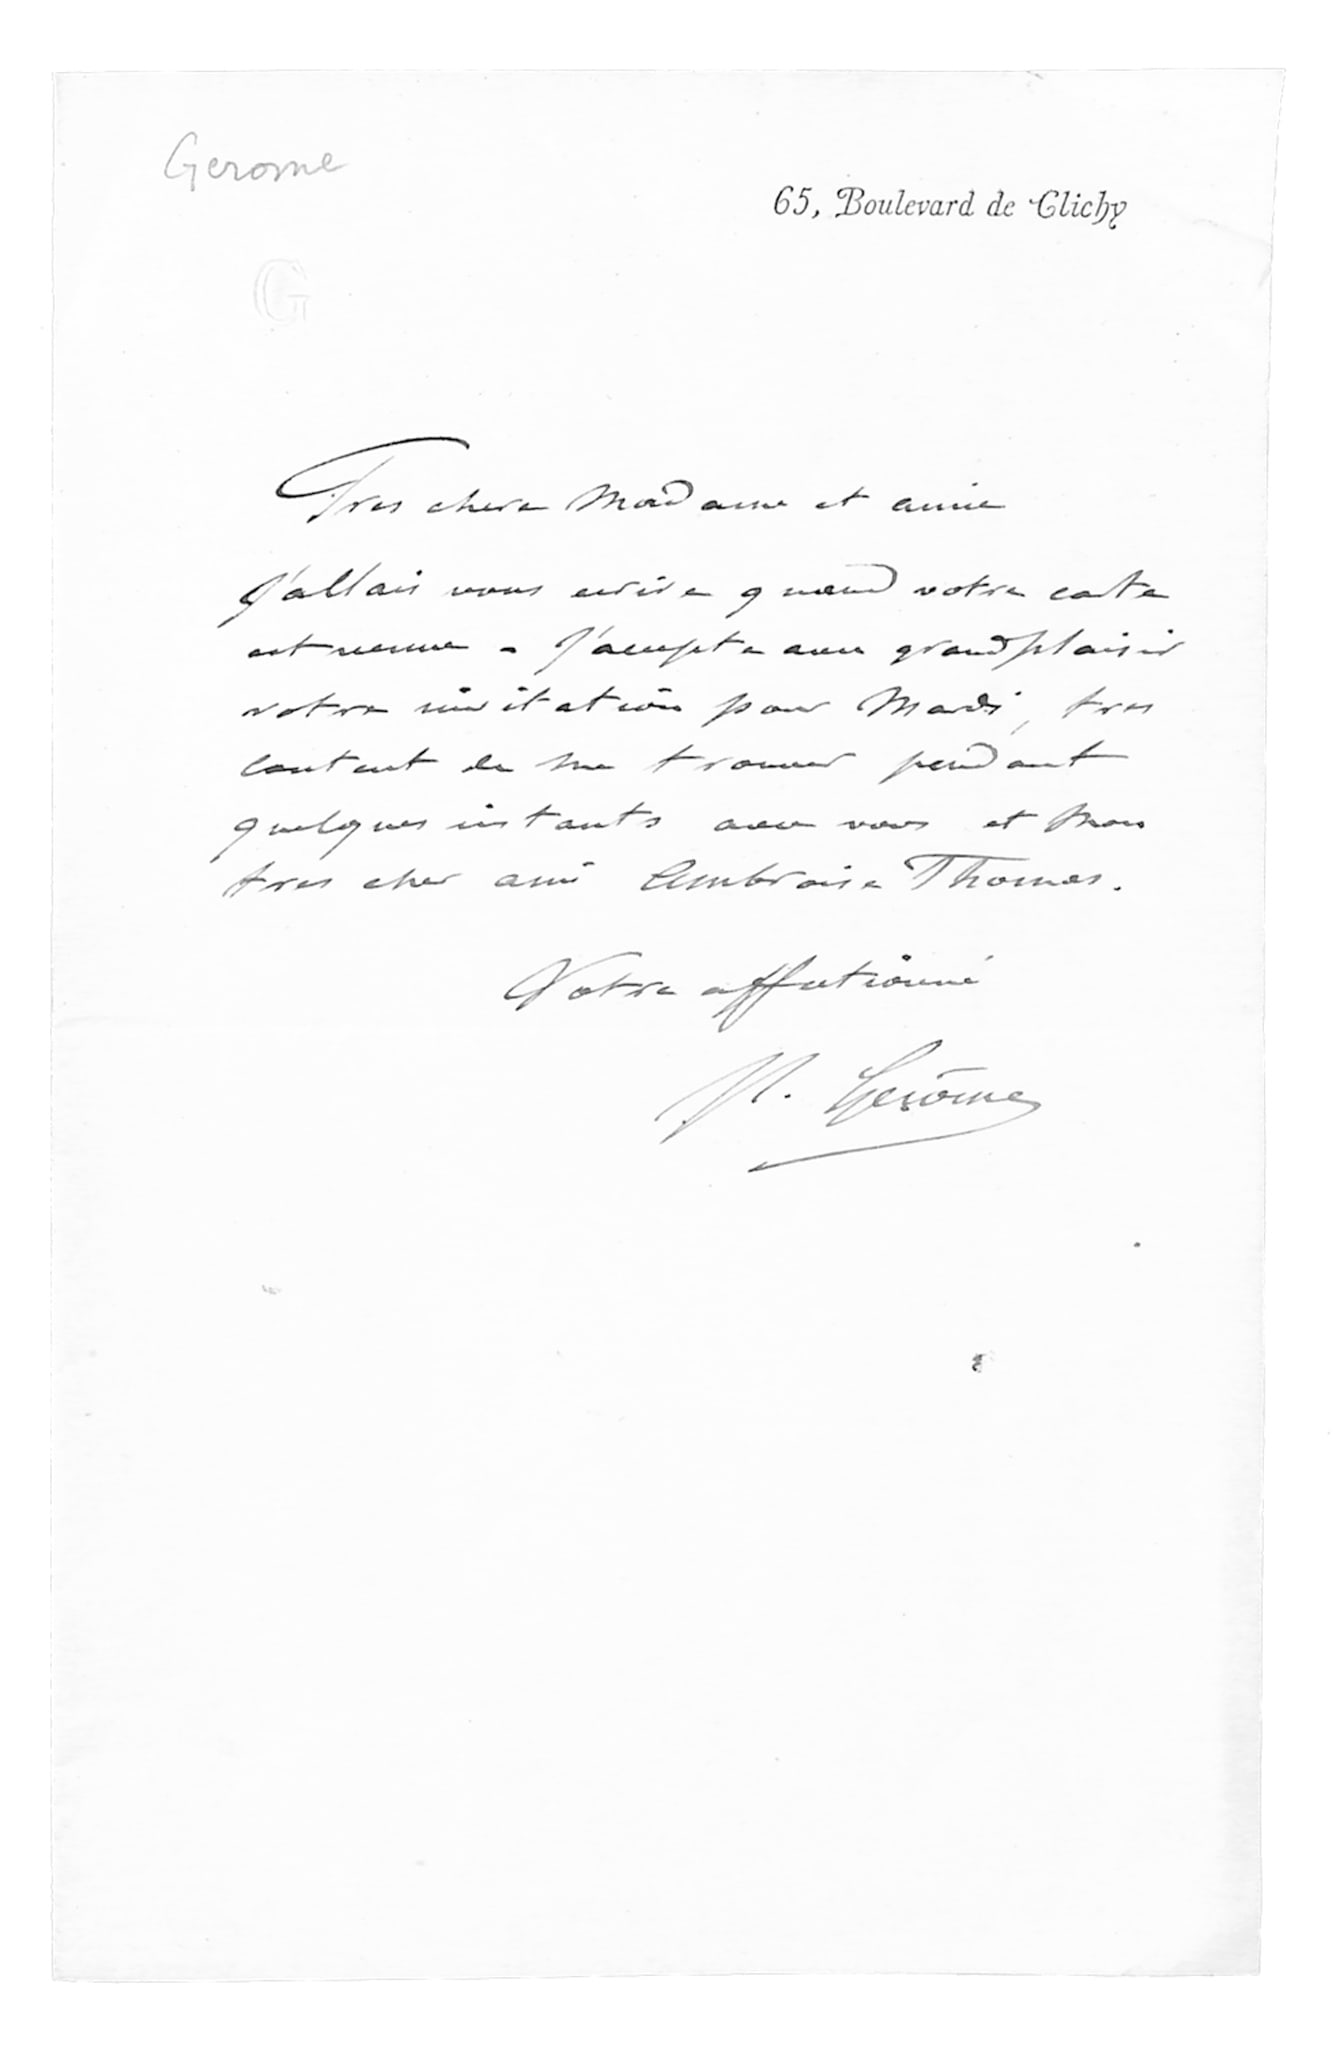 Gerome
65, Boulevard de Clichy
G
Tres chere Madame et amie
J'allais vous ecrire quand votre carte
est venue - J'accepte avec grand plaisir
votre invitation pour Mardi, tres
content de me trouver pendant
quelques instants avec vous et mon
tres cher ami Ambroise Thomas.
Votre affectionné
Gerôme